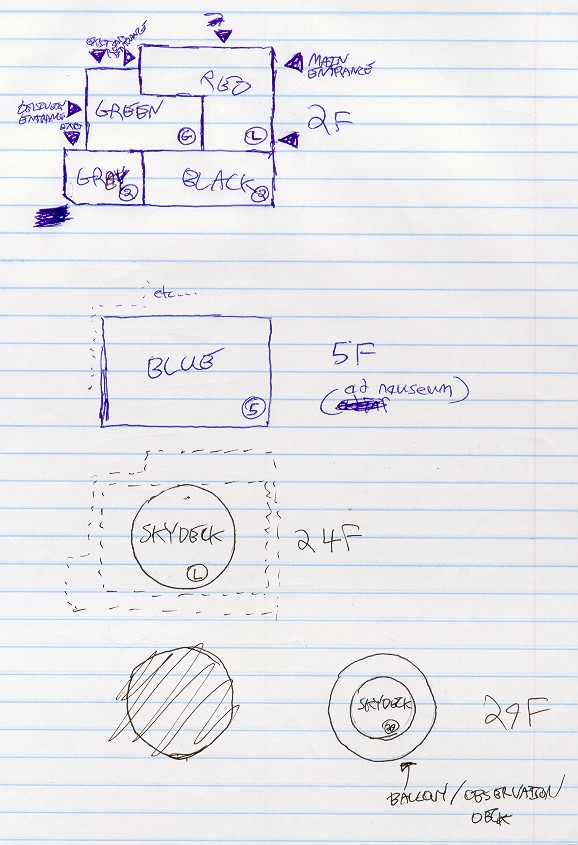 MAIN
ENTRANCE
RED
GREEN
2F
ENTRANCE
G
L
GRAY
2
BLACK
2
etc....
BLUE
5F
(ad nauseum)
5
SKYDECK
24F
L
SKYDECK
29F
BALCONY / OBSERVATION
DECK